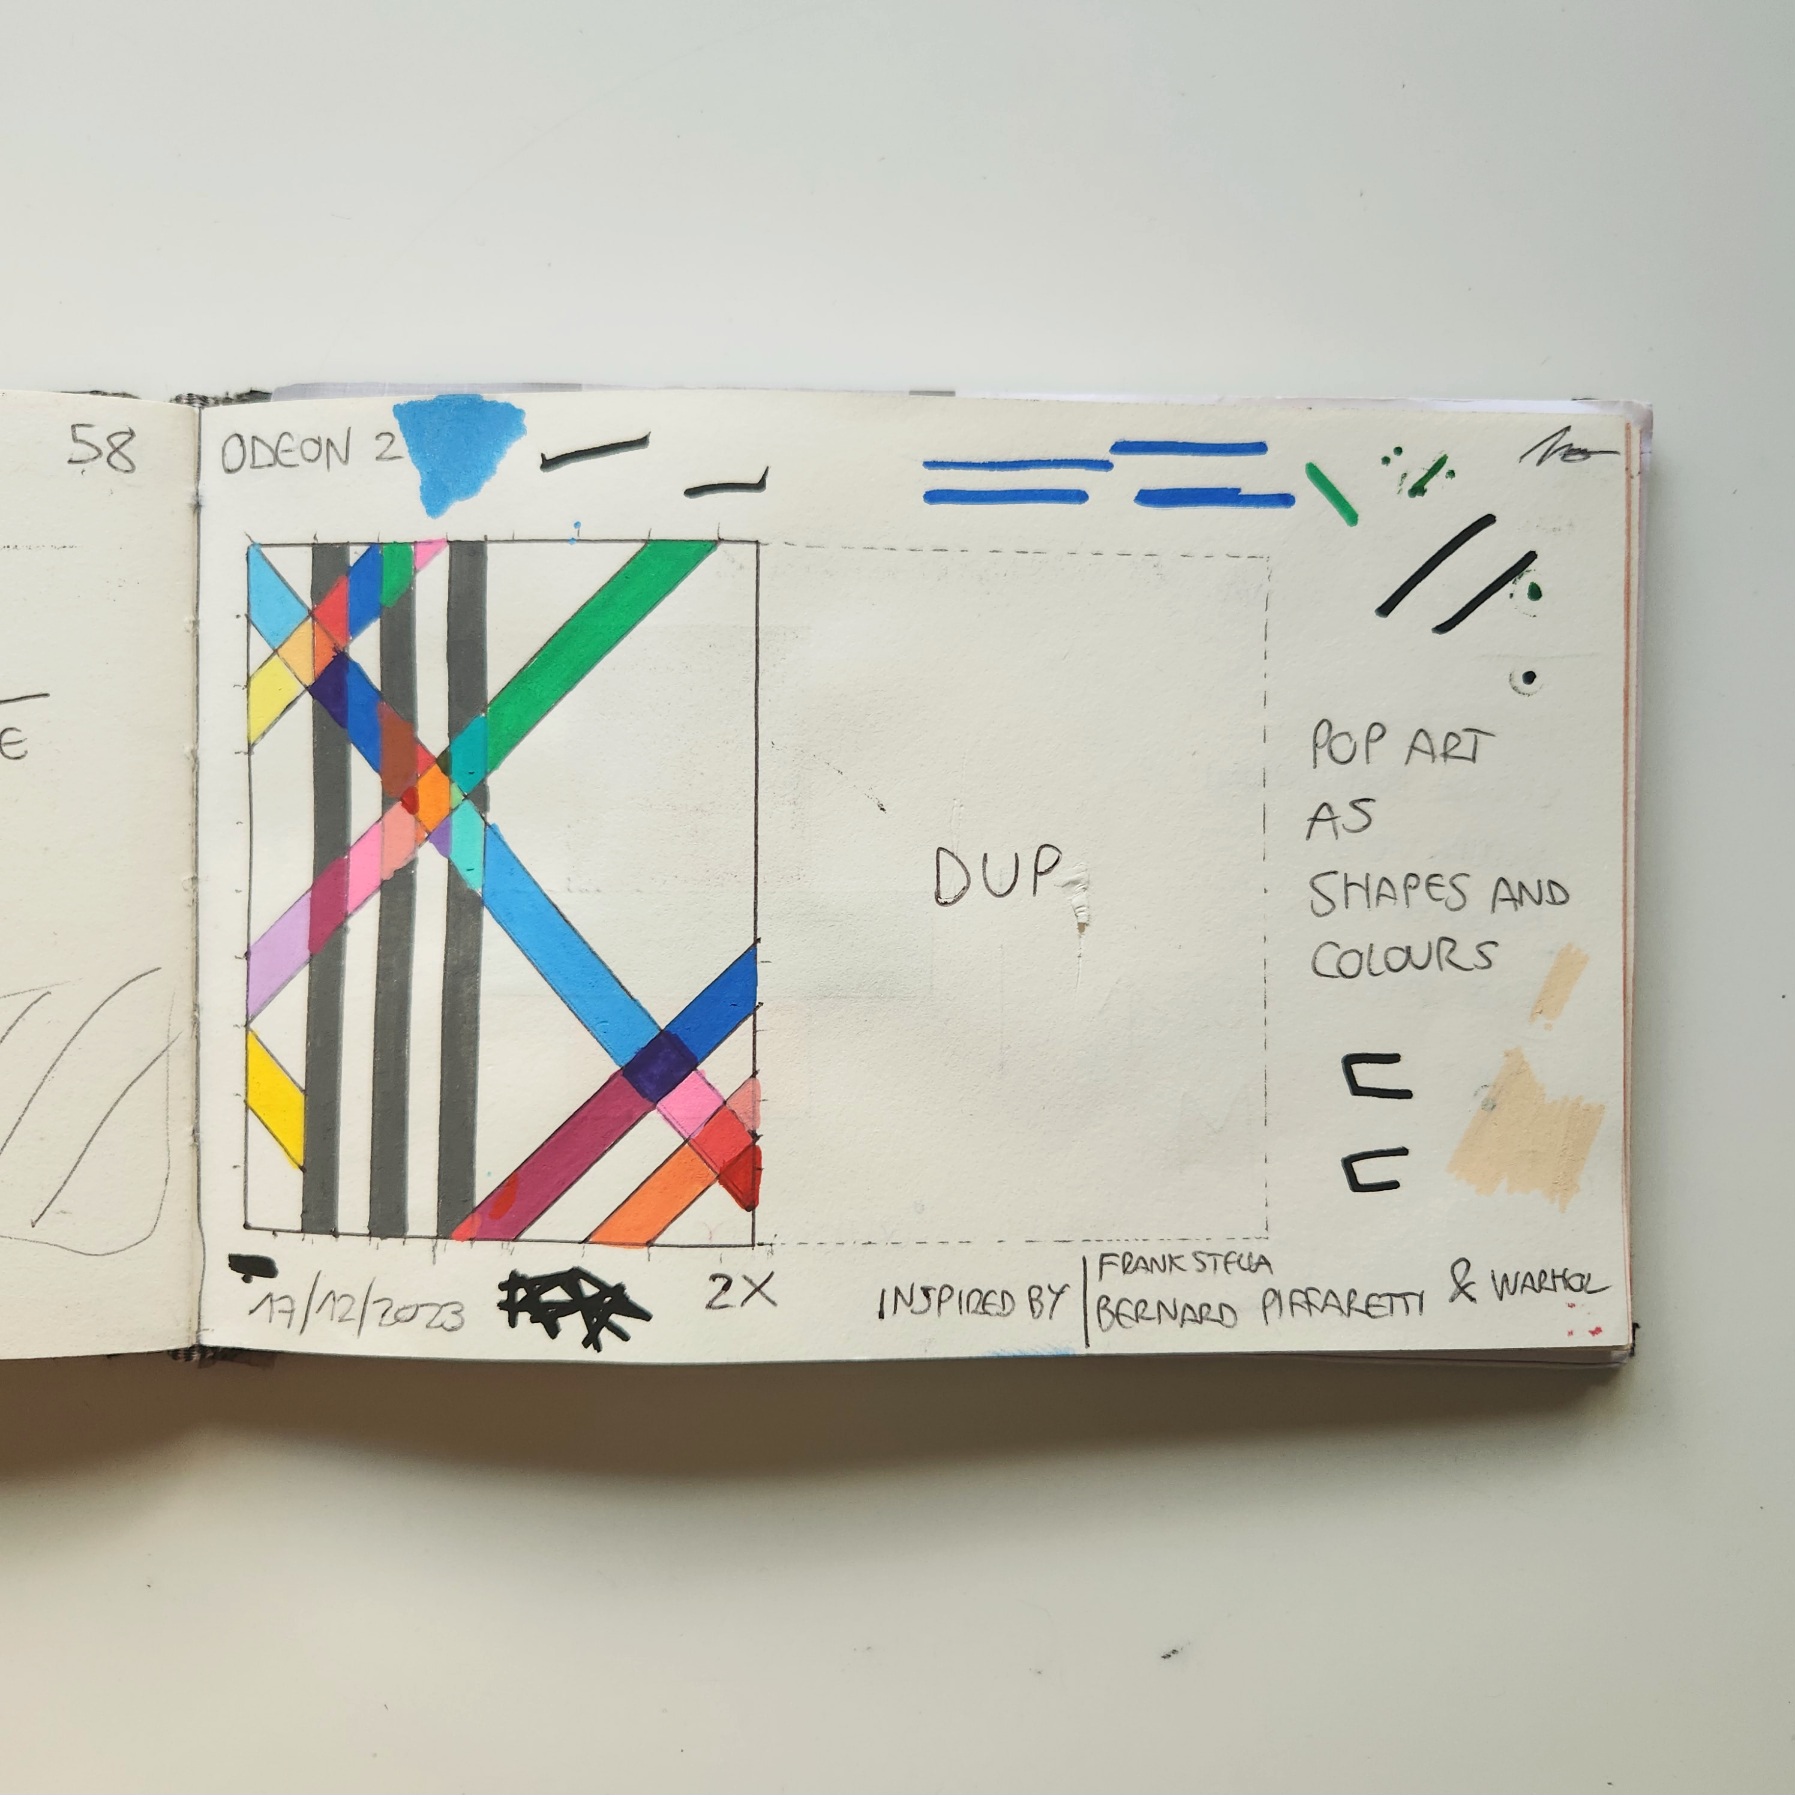 58
E
ODEON 2
DUP
POP ART
AS
SHAPES AND
COLOURS
17/12/2023
2X
INSPIRED BY
FRANK STELLA
BERNARD PIFFARETTI
& WARHOL